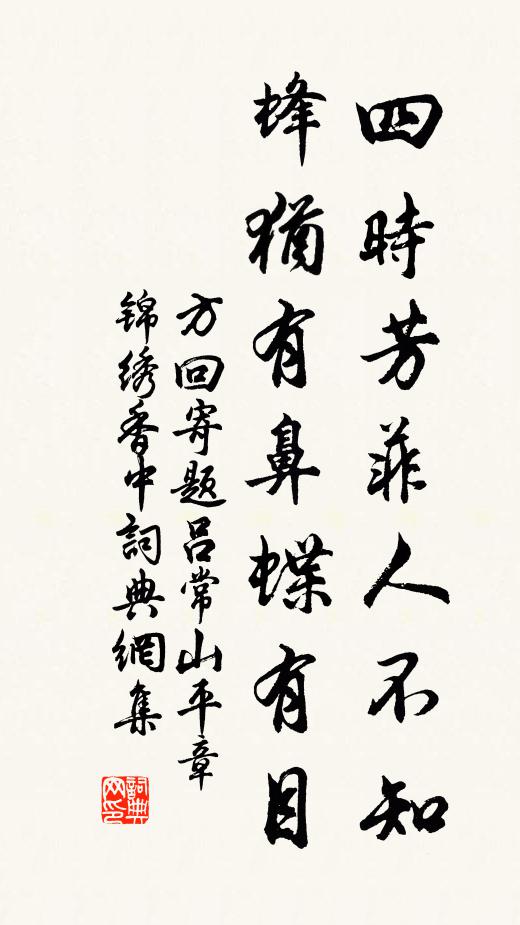 四時芳菲人不知
蜂猶有鼻蝶有目
方回寄题吕常山平章
锦绣香中詞典網集
詞典
网印